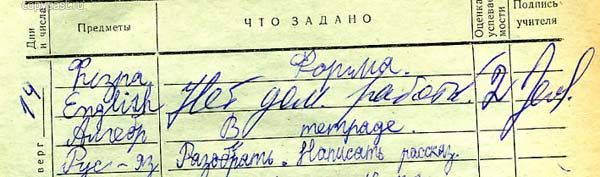 copypast.ru
Дни и числа Предметы ЧТО ЗАДАНО Оценка успеваемости Подпись учителя
14 Физра Форма.
English Нет дом. работы. 2
Алгебр В тетраде.
верг Рус-яз Разобрать. Написать рассказ.